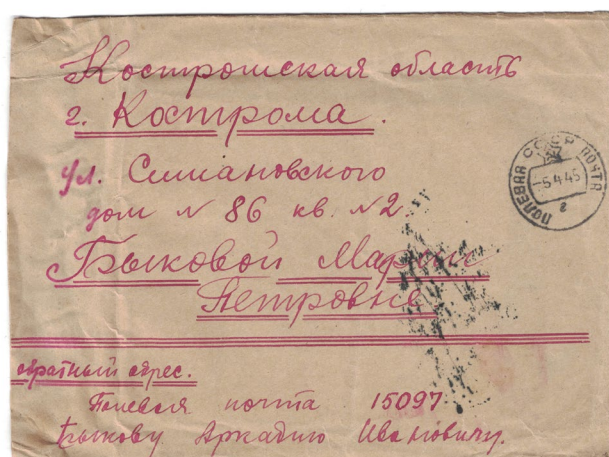 Костромская область
г. Кострома.
ул. Симановского
дом № 86 кв. № 2
Быковой Марии
Петровне
ПОЛЕВАЯ ПОЧТА
СССР
-5 4 45
г
обратный адрес.
Полевая почта 15097
Быкову Аркадию Ивановичу.